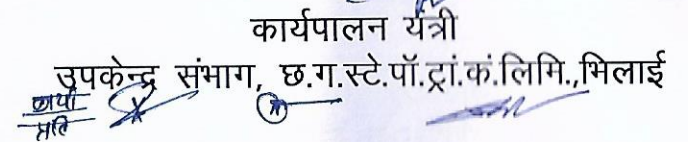 कार्यपालन यंत्री
उपकेन्द्र संभाग, छ.ग.स्टे.पॉ.ट्रां.कं.लिमि.,भिलाई
प्रति